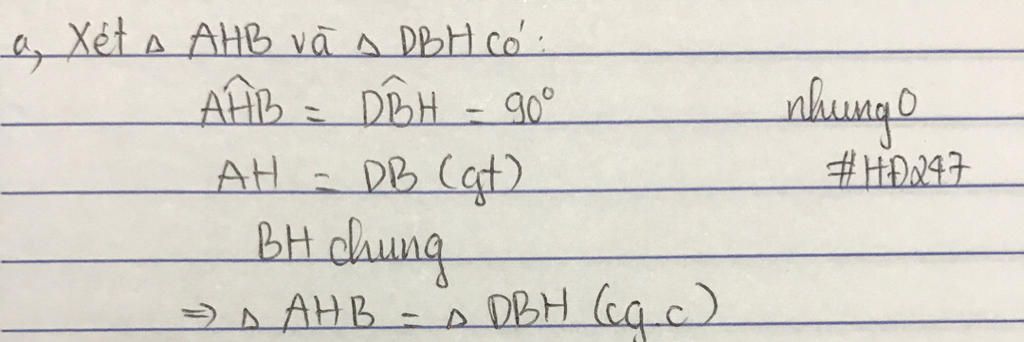 a, Xét △ AHB và △ DBH có:
AĤB = DB̂H = 90°
nhung0
AH = DB (gt)
#HĐ247
BH chung
⇒ △ AHB = △ DBH (cg.c)